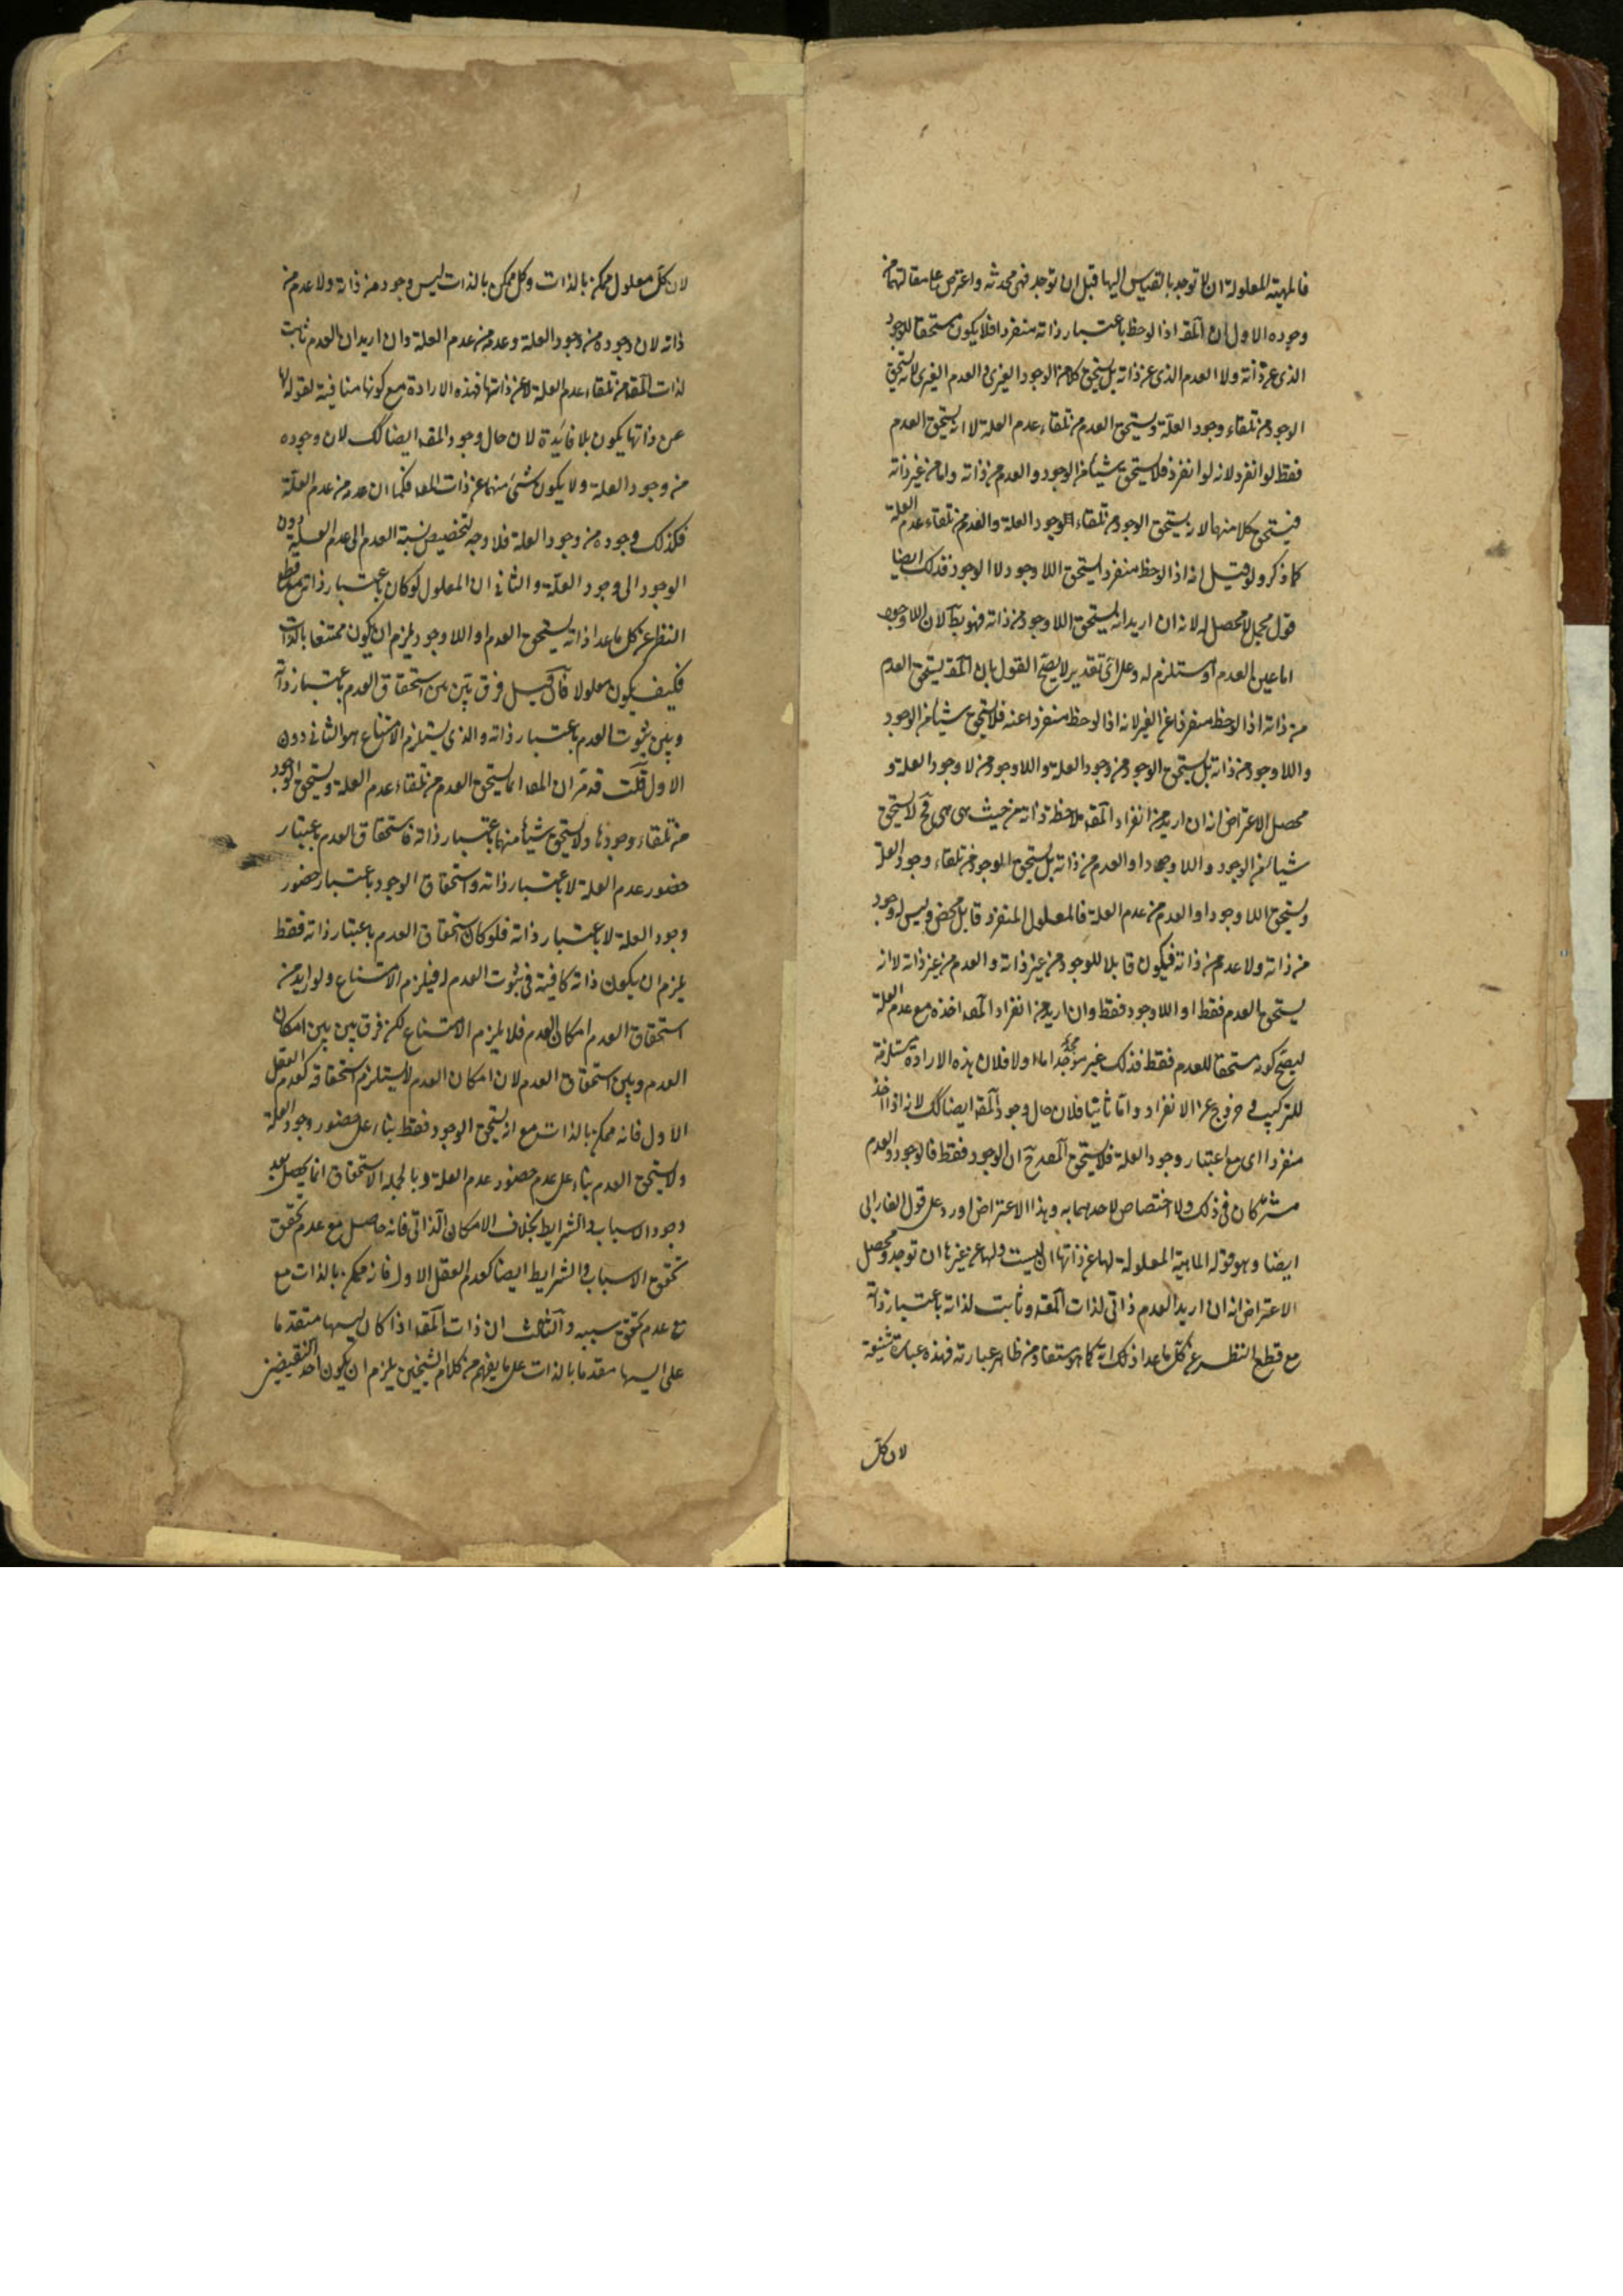 فالمهية المعلولة ان لا توجد بالقياس اليها قبل ان توجد فهى محدثة واعترض على مقالتهما من
وجوه الاول ان المقـ اذا لوحظ باعتبار ذاته منفردا فلا يكون مستحقا للوجود
الذى عن ذاته ولا العدم الذى عن ذاته بل يستحق كلا من الوجود الغيرى والعدم الغيرى لانه يستحق
الوجود من تلقاء وجود العلة ويستحق العدم من تلقاء عدم العلة لا انه يستحق العدم
فقط لو انفرد لانه لو انفرد فلا يستحق شيئا من الوجود والعدم من ذاته واما من غير ذاته
فيستحق كلا منهما لانه يستحق الوجود من تلقاء الوجود العلة والعدم من تلقاء عدم العلة
كما ذكر ولو قيل انه اذا لوحظ منفردا يستحق اللاوجود لا الوجود فذلك ايضا
قول مجمل لا محصل له لانه ان اريد انه يستحق اللاوجود من ذاته فهو بط لان اللاوجود
اما عين العدم او مستلزم له وعلى اى تقدير لا يصح القول بان المقـ يستحق العدم
من ذاته اذا لوحظ منفردا عن الغير لانه اذا لوحظ منفردا عنه فلا يستحق شيئا من الوجود
واللاوجود من ذاته بل يستحق الوجود من وجود العلة واللاوجود من لا وجود العلة و
محصل الاعتراض انه ان اريد من انفراد المقـ ملاحظة ذاته من حيث هى هى فح لا يستحق
شيئا من الوجود واللاوجود او العدم من ذاته بل يستحق الوجود من تلقاء وجود العلة
ويستحق اللاوجود او العدم من عدم العلة فالمعلول المنفرد قابل محض وليس له وجود
من ذاته ولا عدم من ذاته فيكون قابلا للوجود من غير ذاته والعدم من غير ذاته لا انه
يستحق العدم فقط او اللاوجود فقط وان اريد من انفراد المقـ اخذه مع عدم العلة
ليصح كونه مستحقا للعدم فقط فذلك غير موجه اما اولا فلان هذه الارادة مستلزمة
للتركيب وخروج عن الانفراد واما ثانيا فلان حال وجود المقـ ايضا كك لانه اذا اخذ
منفردا اى مع اعتبار وجود العلة فلا يستحق المقـ ح ان الوجود فقط فالوجود والعدم
مشتركان فى ذلك ولا اختصاص لاحدهما به وهذا الاعتراض اورد على قول الفارابى
ايضا وهو قوله الماهية المعلولة لها عن ذاتها ان ليست ولها عن غيرها ان توجد ومحصل
الاعتراض انه ان اريد العدم ذاتى لذات المقـ وثابت لذاته باعتبار ذاته
مع قطع النظر عن كل ما عدا ذلك انه كما هو مستفاد من ظاهر عبارته فهذه عبارة شنيعة
لان كل
لان كل معلول ممكن بالذات وكل ممكن بالذات ليس وجوده من ذاته ولا عدم من
ذاته لان وجوده من وجود العلة وعدمه من عدم العلة وان اريد ان العدم ثابت
لذات المقـ من تلقاء عدم العلة لا عن ذاتها فهذه الارادة مع كونها منافية لقوله لها
عن ذاتها يكون بلا فائدة لان حال وجود المقـ ايضا كك لان وجوده
من وجود العلة ولا يكون شئ منهما عن ذات المقـ فكما ان عدمه من عدم العلة
فكذلك وجوده من وجود العلة فلا وجه لتخصيص نسبة العدم الى عدم العلة دون
الوجود الى وجود العلة والثانى ان المعلول لو كان باعتبار ذاته مع قطع
النظر عن كل ما عدا ذاته يستحق العدم او اللاوجود يلزم ان يكون ممتنعا بالذات
فكيف يكون معلولا فان قيل فرق بين بين استحقاق العدم باعتبار ذاته
وبين ثبوت العدم باعتبار ذاته والذى يستلزم الامتناع هو الثانى دون
الاول قلت قد مر ان المقـ انما يستحق العدم من تلقاء عدم العلة ويستحق الوجود
من تلقاء وجودها ولا يستحق شيئا منهما باعتبار ذاته فاستحقاق العدم باعتبار
حضور عدم العلة لا باعتبار ذاته واستحقاق الوجود باعتبار حضور
وجود العلة لا باعتبار ذاته فلو كان استحقاق العدم باعتبار ذاته فقط
يلزم ان يكون ذاته كافية فى ثبوت العدم له فيلزم الامتناع ولو اريد من
استحقاق العدم امكان العدم فلا يلزم الامتناع لكن فرق بين بين امكان
العدم وبين استحقاق العدم لان امكان العدم لا يستلزم استحقاقه كعدم العقل
الاول فانه ممكن بالذات مع انه يستحق الوجود فقط بناء على حضور وجود العلة
ولا يستحق العدم بناء على عدم حضور عدم العلة وبالجملة الاستحقاق انما يحصل بعد
وجود الاسباب والشرايط بخلاف الامكان الذاتى فانه حاصل مع عدم تحقق
تحقق الاسباب والشرايط ايضا كعدم العقل الاول فانه ممكن بالذات مع
مع عدم تحقق سببه والثالث ان ذات المقـ اذا كان ليسها متقدما
على ايسها مقدما بالذات على ما يفهم من كلام الشيخين يلزم ان يكون احد النقيضين